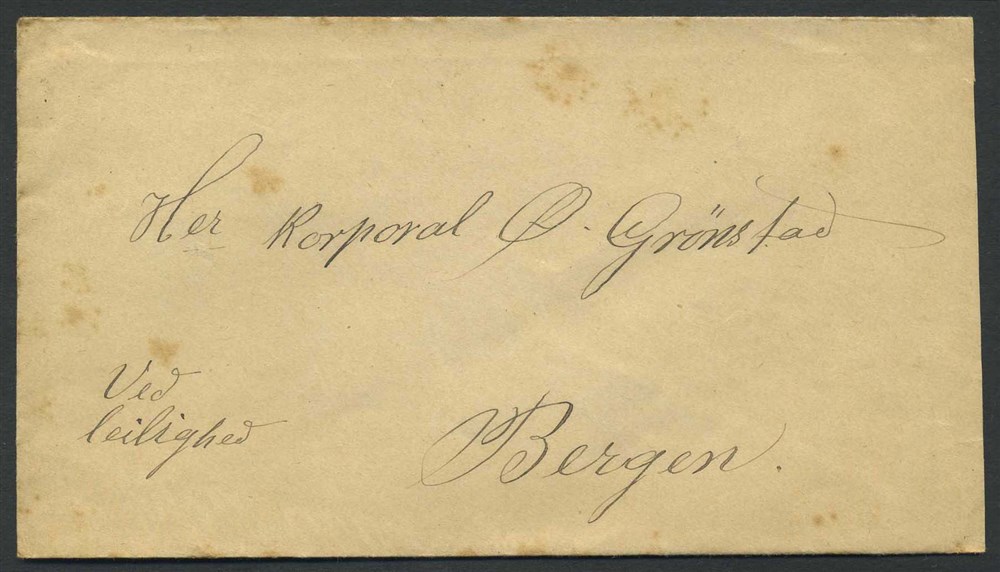 Her Korporal O. Grönstad
Ved
leilighed
Bergen.